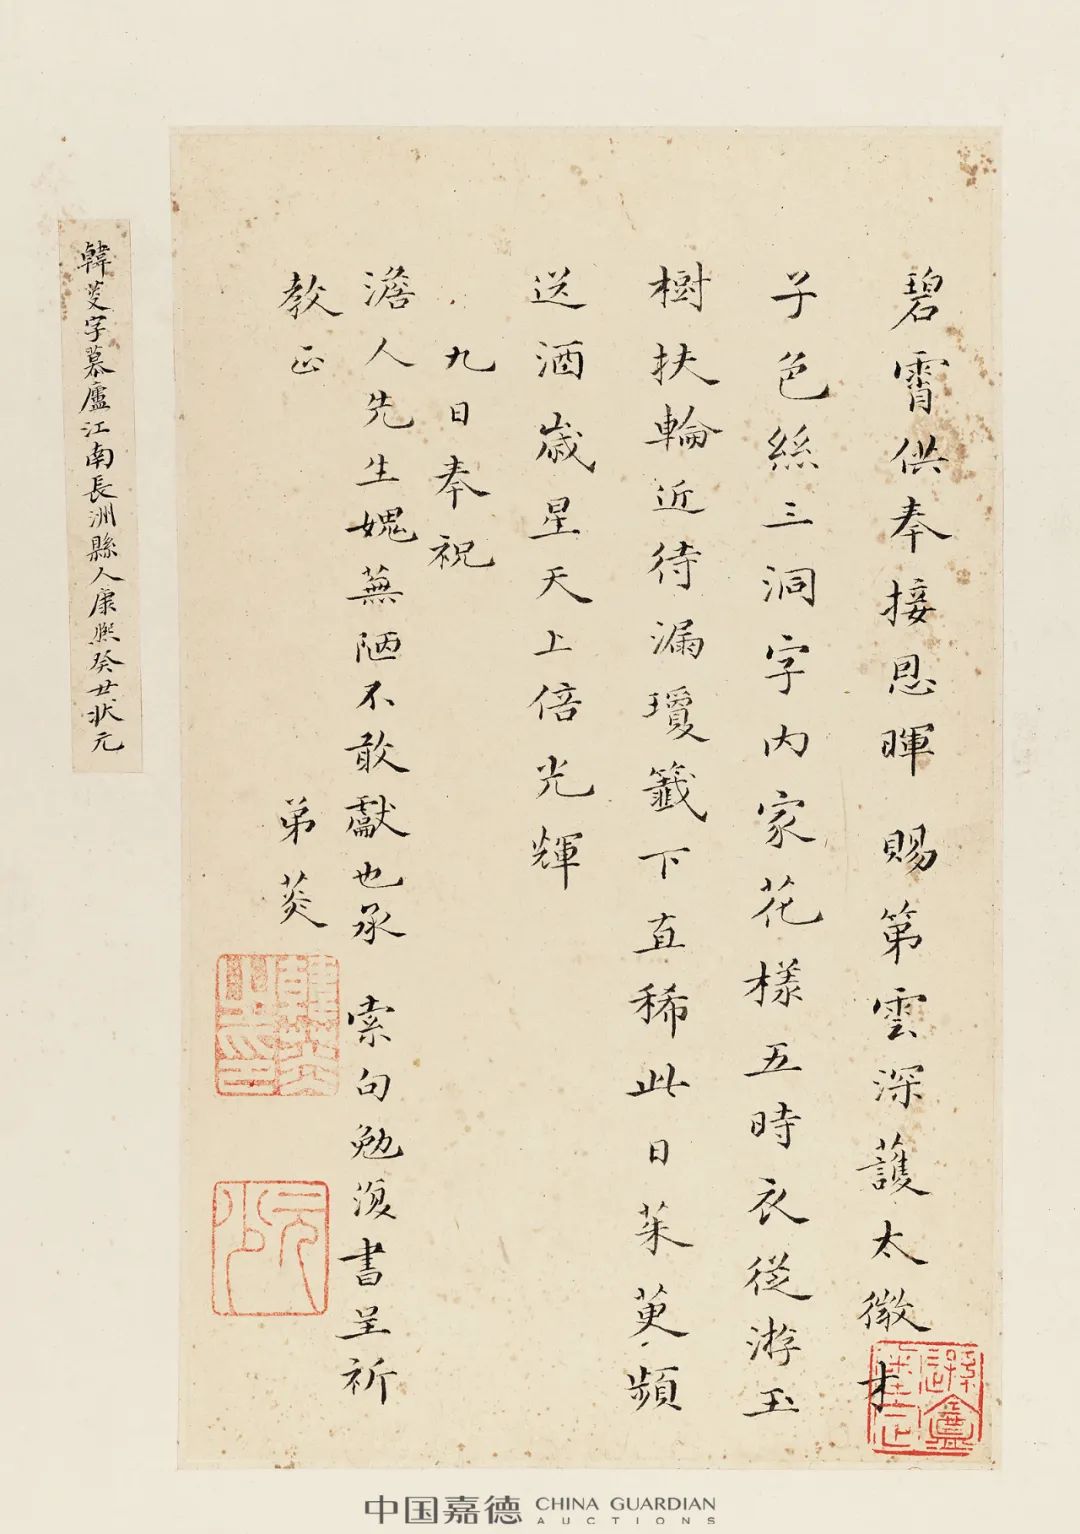 碧霄供奉接恩暉 賜第雲深護太微才
子色絲三洞字內家花樣五時衣從游玉
樹扶輪近待漏瓊籤下直稀此日茱萸頻
送酒歲星天上倍光輝
九日奉祝
澹人先生媿蕪陋不敢獻也承 索句勉復書呈祈
教正
弟菼
韓菼字慕廬江南長洲縣人康熙癸丑狀元
韓菼之印
元少
中国嘉德 CHINA GUARDIAN
AUCTIONS